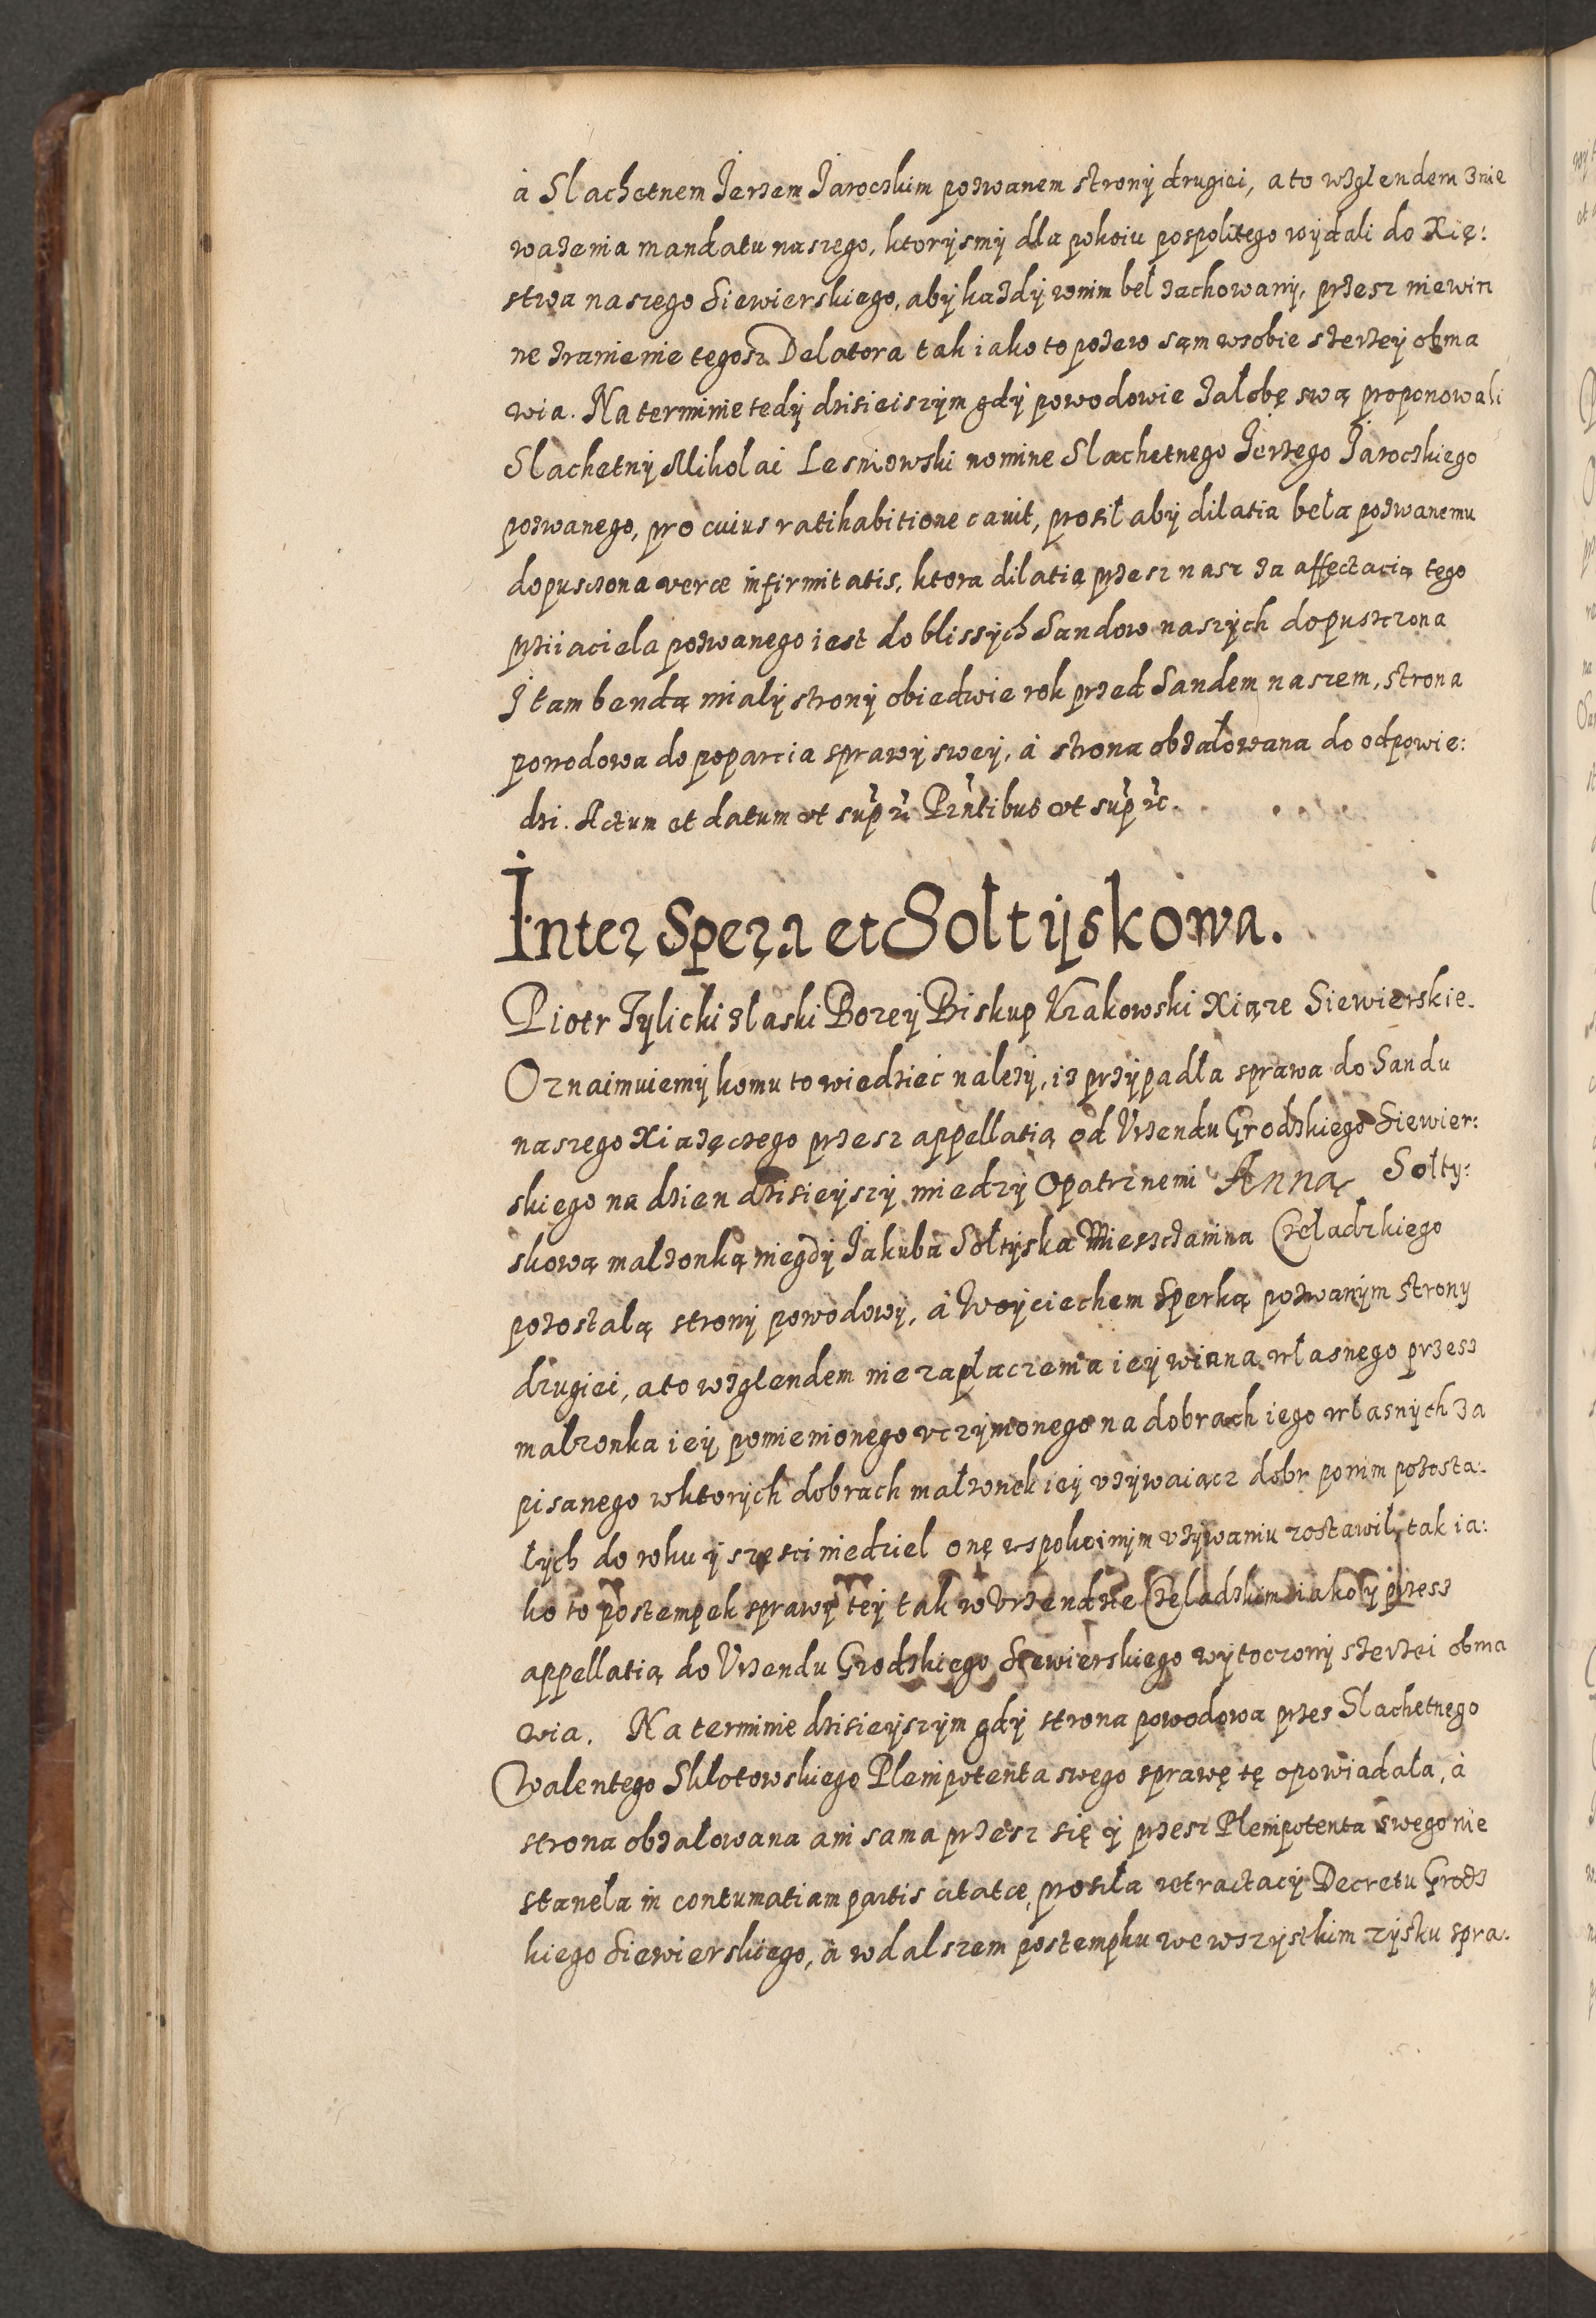 à Slachetnem Jerzem Jaroczkim pozwanem strony drugiei, a to wzglendem znie
ważenia mandatu naszego, ktorysmy dla pokoiu pospolitego wydali do Xię:
stwa naszego Siewierskiego, aby każdy w nim beł zachowany, przesz niewin
ne zranienie tegosz Delatora tak iako to pozew sąm w sobie szerzey obma
wia. Na terminie tedy dzisieiszym gdy powodowie żałobę swą proponowali
Slachetny Mikolai Lesniowski nomine Slachetnego Jerzego Jaroczkiego
pozwanego, pro cuius ratihabitione cauit, prosił aby dilatia beła pozwanemu
dopusczona veræ infirmitatis, ktora dilatią przesz nasz za affęctacią tego
przyiaciela pozwanego iest do blissych Sandow naszych dopusczona
J tam bendą miały strony obiedwie rok przed Sandem naszem, strona
powodowa do poparcia sprawy swey, à strona obżałowana do odpowie:
dzi. Actum et datum ut supra Pntibus ut supra.
Inter Spera et Sołtyskowa.
Piotr Tylicki z laski Bozey Biskup Krakowski Xiąze Siewierskie.
Oznaimuiemy komu to wiedzieć należy, iż przypadła sprawa do Sandu
naszego Xiażęczego przesz appellatią od Vrzendu Grodzkiego Siewier:
skiego na dzien dzisieyszy miedzy Opatrznemi Anną Sołty:
skową małżonką niegdy Jakuba Sołtyska Miesczanina Czeladzkiego
pozostałą strony powodowy, à Woyciechem Sperką pozwanym strony
drugiei, a to wzglendem niezapłaczenia iey wiana własnego przesz
małzonka iey pomienionego vczynionego na dobrach iego własnych za
pisanego w ktorych dobrach małzonek iey vżywaiącz dobr po nim pozosta:
łych do roku y szesci niedziel onę w spokoinym vżywaniu zostawił, tak ia:
ko to postempek sprawy tey tak w Vrzendzie Czeladzkim iako y przesz
appellatią do Vrzendu Grodzkiego Siewierskiego wytoczony szerzei obma
wia. Na terminie dzisieyszym gdy strona powodowa przes Slachetnego
Walentego Skłotowskiego Plenipotenta swego sprawę tę opowiadała, à
strona obżałowana ani sama przesz się y przesz Plenipotenta swego nie
staneła in contumatiam partis citatæ, prosiła retractacy Decretu Grodz
kiego Siewierskiego, à w dalszem postempku we wszystkim zysku spra: